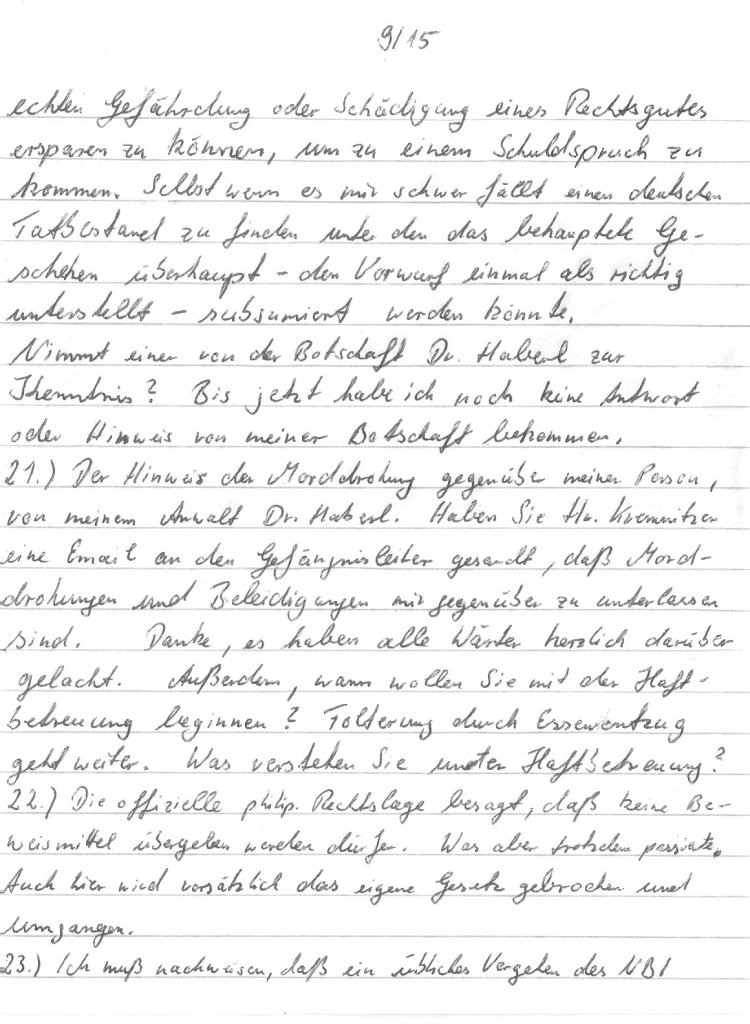 9/15
echten Gefährdung oder Schädigung eines Rechtsgutes
ersparen zu können, um zu einem Schuldspruch zu
kommen. Selbst wenn es mir schwer fällt einen deutschen
Tatbestand zu finden unter den das behauptete Ge-
schehen überhaupt - den Vorwurf einmal als richtig
unterstellt - subsumiert werden könnte.
Nimmt einer von der Botschaft Dr. Haberl zur
Kenntnis? Bis jetzt habe ich noch keine Antwort
oder Hinweis von meiner Botschaft bekommen.
21.) Der Hinweis der Morddrohung gegenüber meiner Person,
von meinem Anwalt Dr. Haberl. Haben Sie Hr. Kremnitzer
eine Email an den Gefängnisleiter gesandt, daß Mord-
drohungen und Beleidigungen mir gegenüber zu unterlassen
sind. Danke, es haben alle Wärter herzlich darüber
gelacht. Außerdem, wann wollen Sie mit der Haft-
betreuung beginnen? Folterung durch Essenentzug
geht weiter. Was verstehen Sie unter Haftbetreuung?
22.) Die offizielle philip. Rechtslage besagt, daß keine Be-
weismittel übergeben werden dürfen. Was aber trotzdem passierte.
Auch hier wird vorsätzlich das eigene Gesetz gebrochen und
umgangen.
23.) Ich muß nachweisen, daß ein übliches Vergehen des NBI